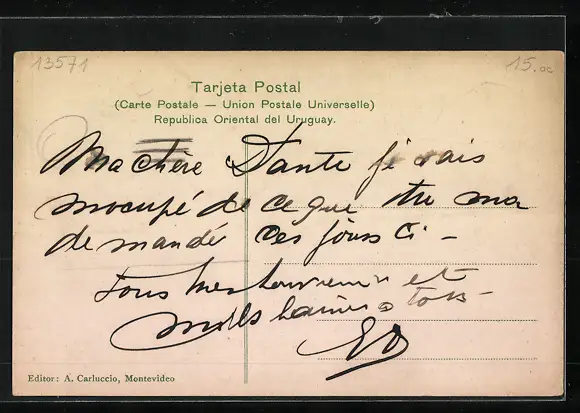 13571
15.00
Tarjeta Postal
(Carte Postale — Union Postale Universelle)
Republica Oriental del Uruguay.
Ma chère Tante je vais
mocupé de ce que tu ma
de mandé ces jours ci —
tous et
mills a tous
Editor: A. Carluccio, Montevideo